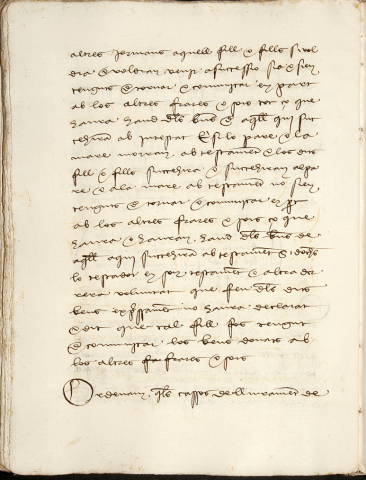 altres jermans aquell fill e fills si vol
dra e voldran venir a successio sia e sien
tenguts de tornar e comunicar en part
ab los altres frares e sors tot ço que
haura haud dels bens de aquell qui suc
cehira ab intestat E si lo pare e la
mare morran ab testament e los dits
fill e fills succehira e succehiran al pa
re e a la mare ab testament no sien
tenguts de tornar e comunicar en part
ab los altres frares e sors ço que
haura e hauran haud dels bens de
aquell a qui succehira ab testament si donchs
lo testador en son testament e altra dar
rera voluntat que feu dels dits
bens expressament no haura declarat
e dit que tal fill fos tengut
de comunicar los bens donats ab
los altres frares e sors
Ordenam quels cassos de lliurament de